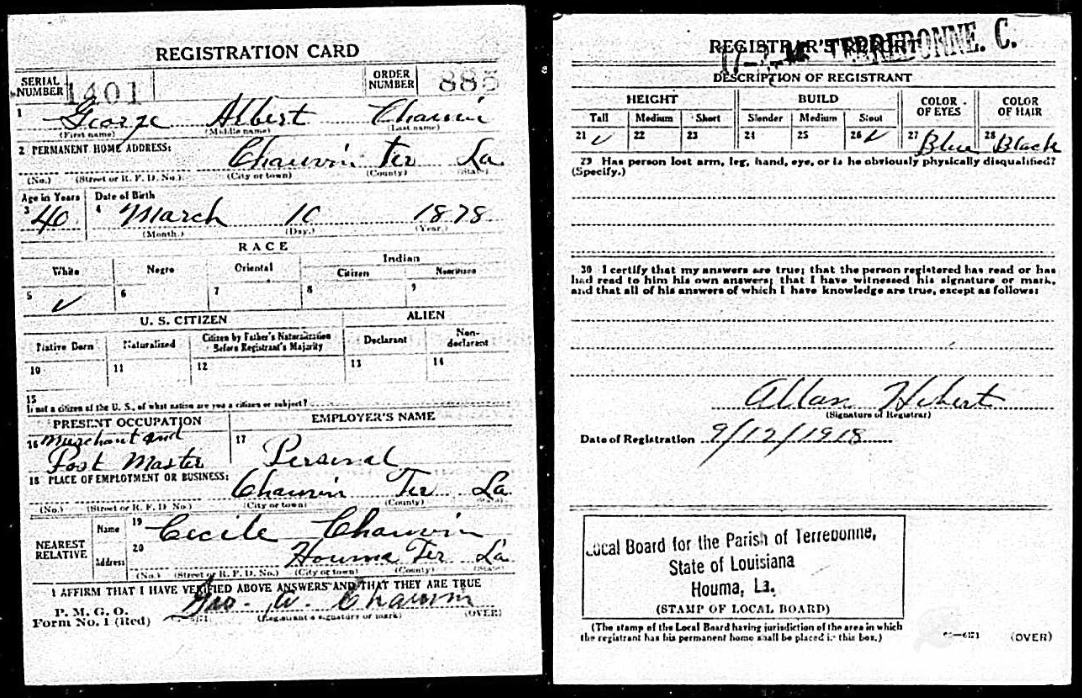 REGISTRATION CARD
SERIAL NUMBER 1401 ORDER NUMBER 885
1 George Albert Chauvin
(First name) (Middle name) (Last name)
2 PERMANENT HOME ADDRESS:
Chauvin Ter La
(No.) (Street or R. F. D. No.) (City or town) (County) (State)
Age in Years Date of Birth
3 40 4 March 10 1878
(Month.) (Day.) (Year.)
RACE
White Negro Oriental Indian
Citizen Noncitizen
5 ✓ 6 7 8 9
U. S. CITIZEN ALIEN
Native Born Naturalized Citizen by Father's Naturalization Before Registrant's Majority Declarant Non-declarant
10 11 12 13 14
15
If not a citizen of the U. S., of what nation are you a citizen or subject?
PRESENT OCCUPATION EMPLOYER'S NAME
16 Merchant and 17
Post Master Personal
18 PLACE OF EMPLOYMENT OR BUSINESS:
Chauvin Ter La
(No.) (Street or R. F. D. No.) (City or town) (County) (State)
NEAREST RELATIVE Name 19 Cecile Chauvin
Address 20 Houma Ter La
(No.) (Street or R. F. D. No.) (City or town) (County) (State)
I AFFIRM THAT I HAVE VERIFIED ABOVE ANSWERS AND THAT THEY ARE TRUE
P. M. G. O.
Form No. 1 (Red) Geo. A. Chauvin
(Registrant's signature or mark) (OVER)
REGISTRAR'S REPORT
TERREBONNE. C.
DESCRIPTION OF REGISTRANT
HEIGHT BUILD COLOR OF EYES COLOR OF HAIR
Tall Medium Short Slender Medium Stout
21 ✓ 22 23 24 25 26 ✓ 27 Blue 28 Black
29 Has person lost arm, leg, hand, eye, or is he obviously physically disqualified?
(Specify.)
30 I certify that my answers are true; that the person registered has read or has
had read to him his own answers; that I have witnessed his signature or mark,
and that all of his answers of which I have knowledge are true, except as follows:
Allan Hebert
(Signature of Registrar)
Date of Registration 9/12/1918
Local Board for the Parish of Terrebonne,
State of Louisiana
Houma, La.
(STAMP OF LOCAL BOARD)
(The stamp of the Local Board having jurisdiction of the area in which
the registrant has his permanent home shall be placed in this box.)
(OVER)